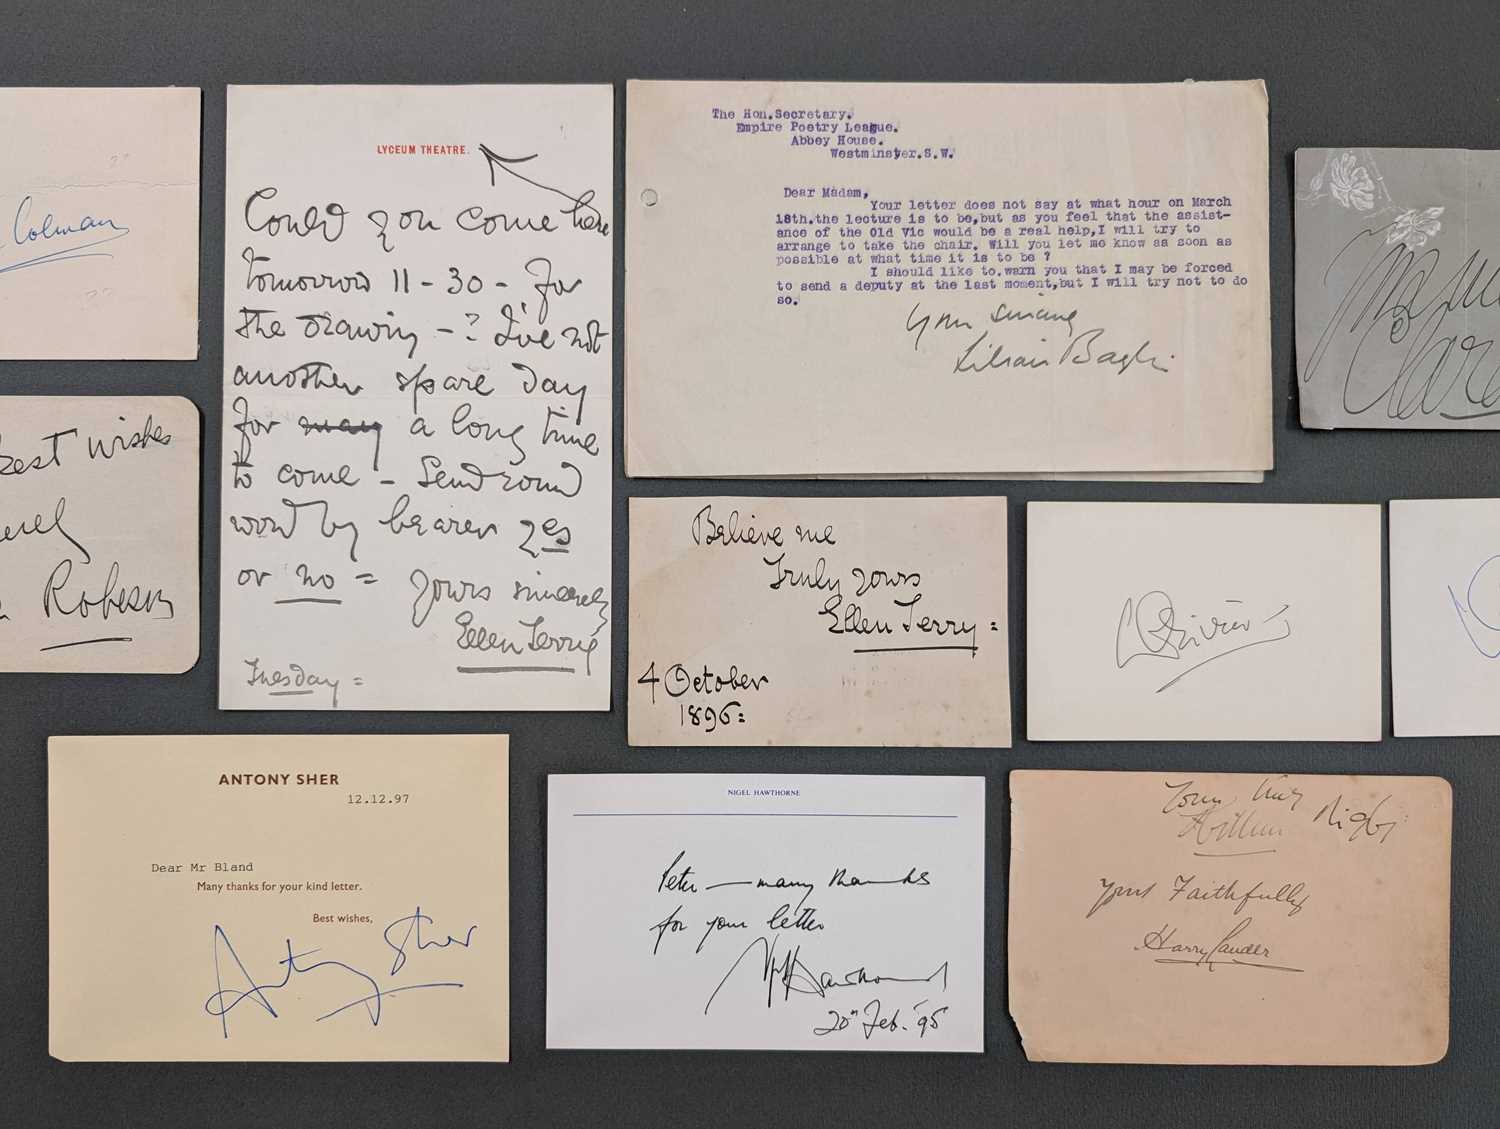 Colman
best wishes
Robeson
LYCEUM THEATRE.
Could you come here
tomorrow 11 - 30 - for
the drawing - ? I've not
another spare day
for many a long time
to come - Send round
word by bearer yes
or no = Yours sincerely
Ellen Terry
Tuesday =
The Hon.Secretary.
Empire Poetry League.
Abbey House.
Westminster.S.W.
Dear Madam,
Your letter does not say at what hour on March
18th.the lecture is to be,but as you feel that the assist-
ance of the Old Vic would be a real help,I will try to
arrange to take the chair. Will you let me know as soon as
possible at what time it is to be ?
I should like to.warn you that I may be forced
to send a deputy at the last moment,but I will try not to do
so.
Yours sincerely
Lilian Baylis
Believe me
Truly yours
Ellen Terry =
4 October
1896 =
LOlivier
ANTONY SHER
12.12.97
Dear Mr Bland
Many thanks for your kind letter.
Best wishes,
Antony Sher
NIGEL HAWTHORNE
Peter — many thanks
for your letter
N Hawthorne
20th Feb. '95
Yours truly
Arthur Rigby
Yours Faithfully
Harry Lauder